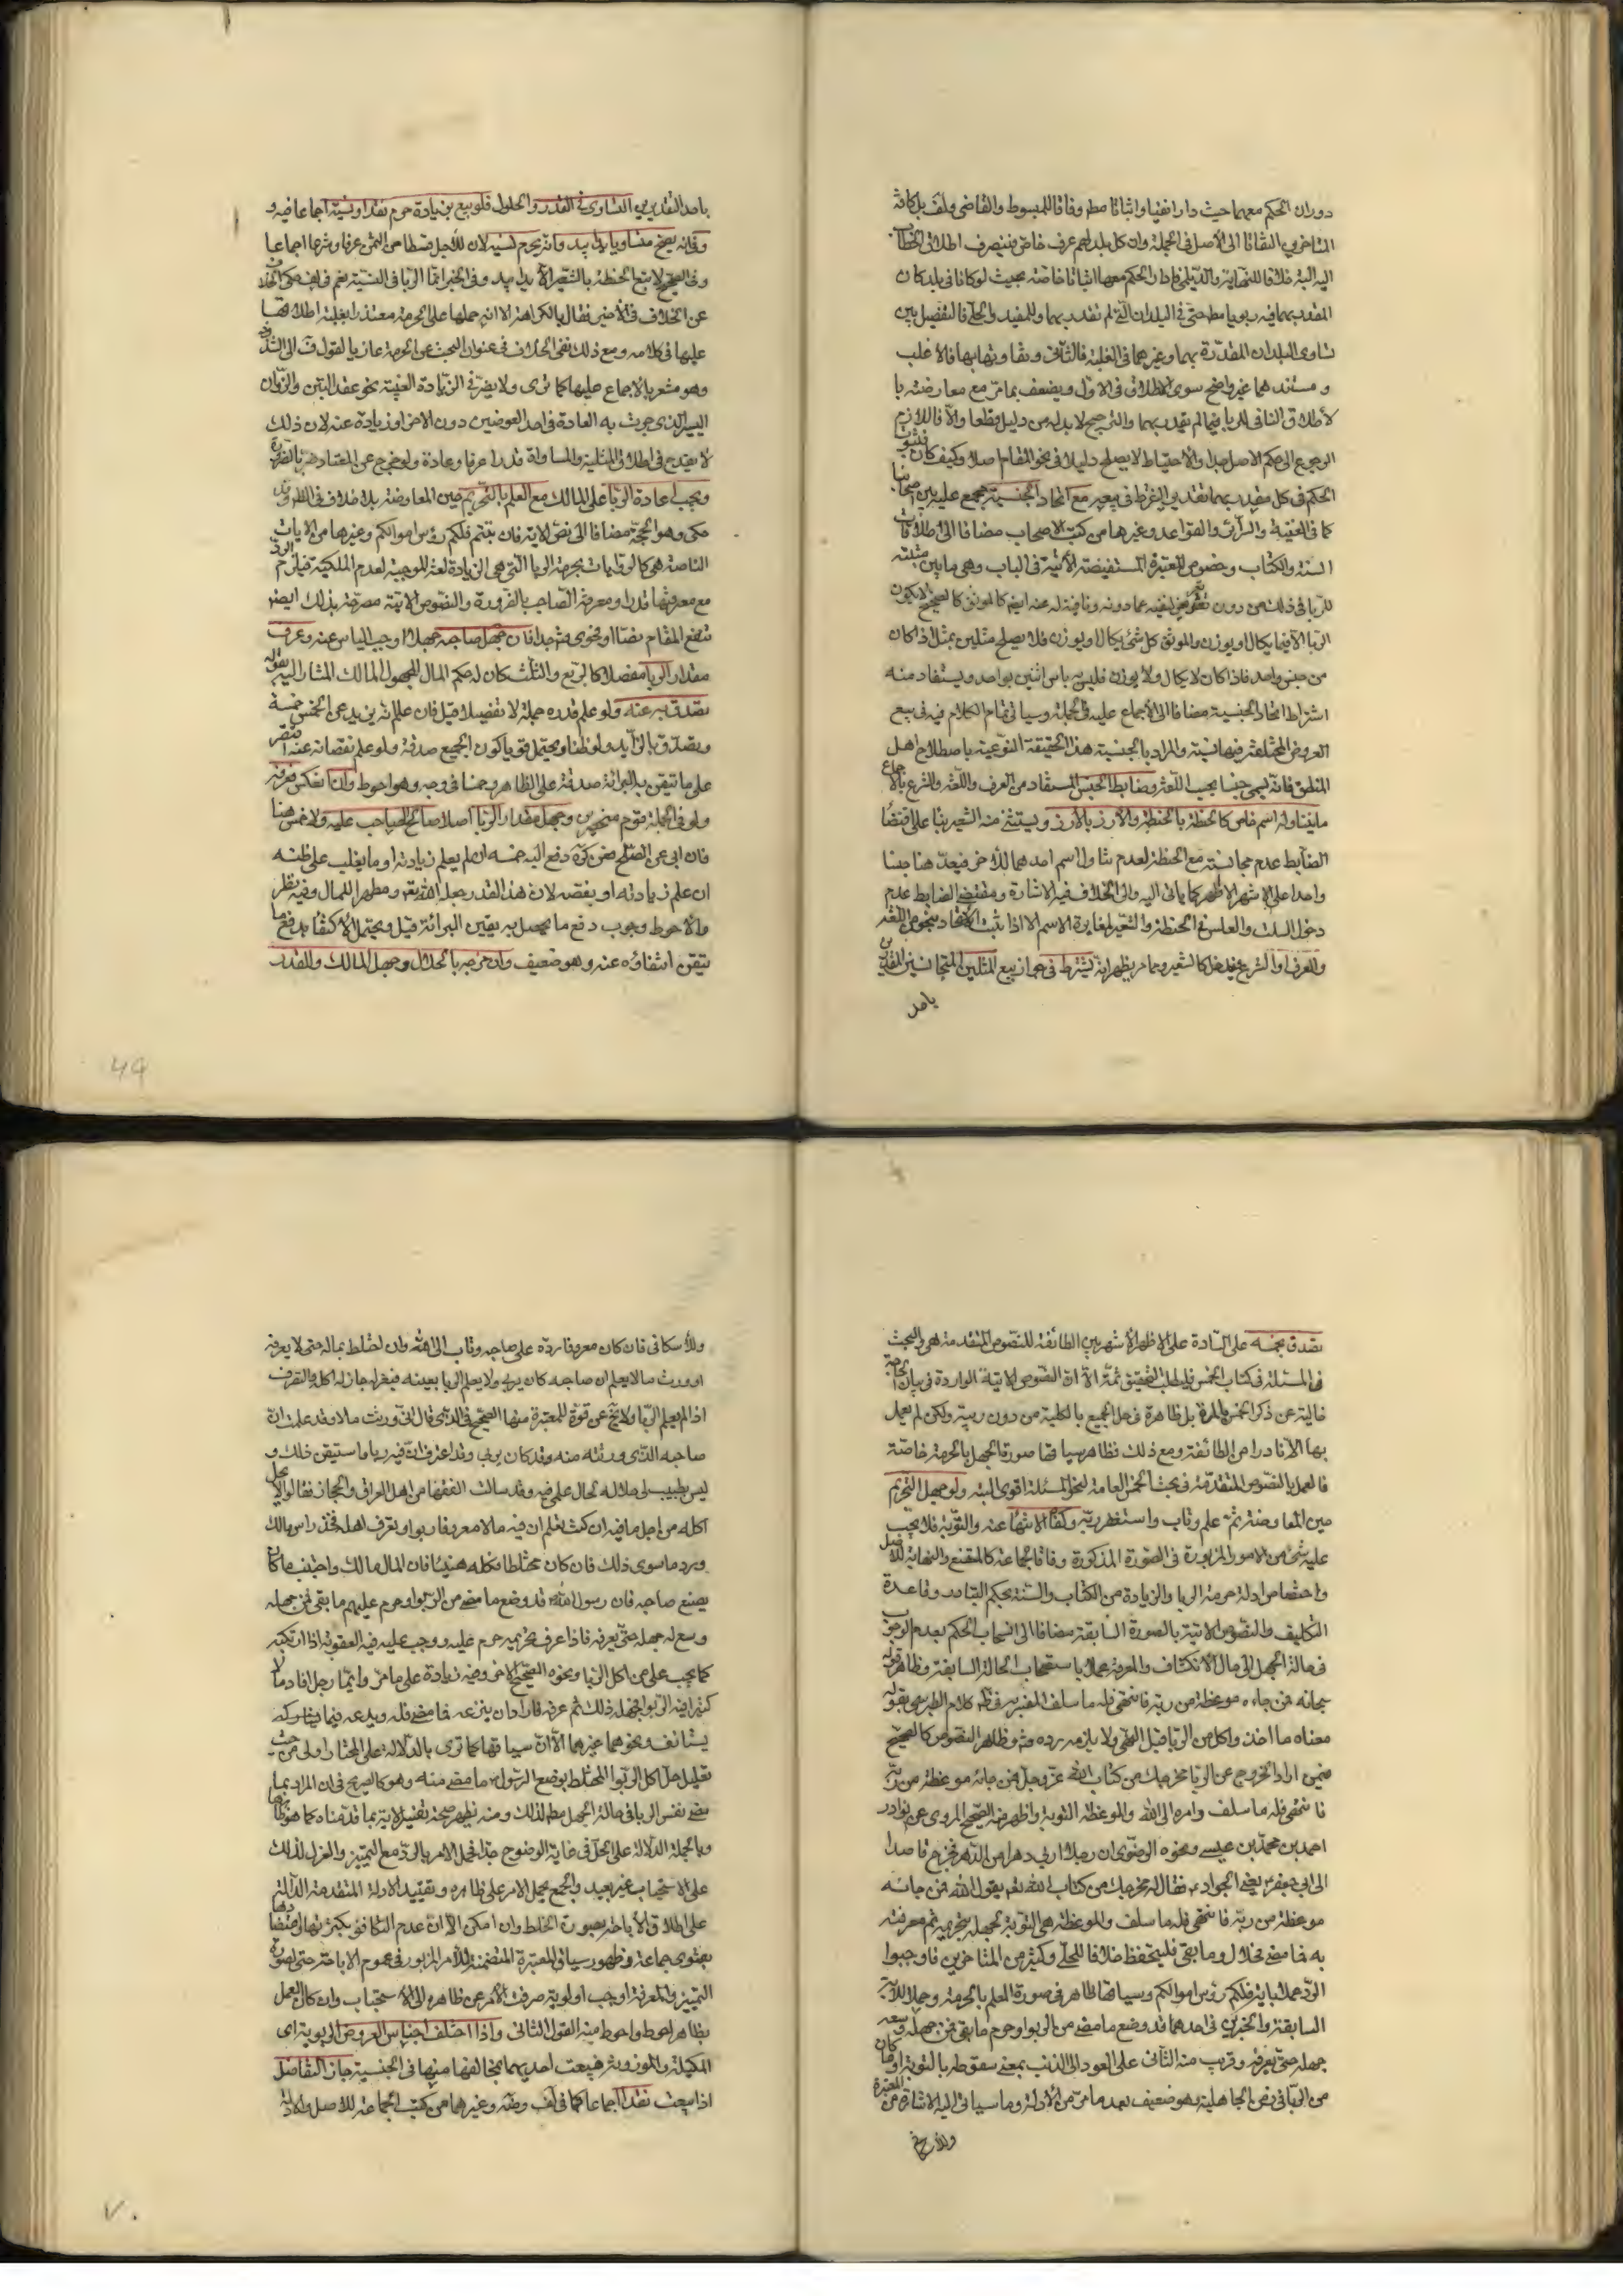 دوران الحكم معهما حيث دارا نفيا واثباتا مط وفاقا للمبسوط والقاضي ولف بل كافة
المتاخرين التفاتا الى الاصل في الجملة وان كل بلد لهم عرف خاص فينصرف اطلاق الخطاب
اليه البتة خلافا للنهاية والديلمي فاطلق الحكم معهما اثباتا خاصة بحيث لو كانا في بلد كان
المقدر بهما فيه ربويا مط حتى في البلدان التي لم تقدر بهما وللمفيد والحلي فالتفصيل بين
تساوى البلدان المقدرة بهما وغيرهما في الغلبة فالثاني وتفاوتهما بها فالاغلب
ومستندهما غير واضح سوى الاطلاق في الاول ويضعف بما مر مع معارضته با
لاطلاق النافي للربا فيما لم يقدر بهما والترجيح لا بد له من دليل قطعا والا فاللازم
الرجوع الى حكم الاصل جدا والاحتياط لا يصلح دليلا في نحو المقام اصلا وكيف كان فثبوت
الحكم في كل مقدر بهما نقد واشترط في بيعه مع اتحاد الجنسية مجمع عليه بين اصحابنا
كما في الغنية والسرائر والقواعد وغيرها من كتب الاصحاب مضافا الى اطلاقات
السنة والكتاب وخصوص المعتبرة المستفيضة الآتية في الباب وهي ما بين مثبتة
للربا في ذلك من دون تعرض لنفيه عما دونه ونافية له عنه ايضا كالموثق كالصحيح لا يكون
الربا الا فيما يكال او يوزن والموثق كل شئ يكال او يوزن فلا يصلح مثلين بمثل اذا كان
من جنس واحد فاذا كان لا يكال ولا يوزن فليس به باس اثنين بواحد ويستفاد منه
اشتراط اتحاد الجنسية مضافا الى الاجماع عليه في الجملة وسياتي تمام الكلام فيه في بيع
العروض المختلفة فيها نسية والمراد بالجنسية هذا الحقيقة النوعية باصطلاح اهل
المنطق فانه يسمى جنسا بحسب اللغة وضابط الجنس المستفاد من العرف واللغة والشرع بالاجماع
ما يتناوله اسم خاص كالحنطة بالحنطة والارز بالارز ويستثنى منه الشعير بناء على اقتضاء
الضابط عدم مجانسته مع الحنطة لعدم تناول اسم احدهما للآخر فيعد هنا جنسا
واحدا على الاشهر الاظهر كما ياتي اليه والى الخلاف فيه الاشارة ومقتضى الضابط عدم
دخول السلت والعلس في الحنطة والشعير لمغايرة الاسم الا اذا ثبت الاتحاد بنحو من اللغة
والعرف او الشرع فيدخل كالشعير ومما مر يظهر انه يشترط في جواز بيع المثلين المتجانسين المقدرين
باحد
باحد التقديرين التساوى في القدر والحلول فلو بيع بزيادة حرم نقدا ونسية اجماعا فيه و
وفانه يصح متساويا يدا بيد وانه يحرم نسية لان للاجل قسطا من الثمن عرفا وشرعا اجماعا
وفي الصحيح لا تبع الحنطة بالشعير الا يدا بيد وفي الخبر انما الربا في النسية نعم في لف حكى الخلاف
عن الخلاف في الاخير فقال بالكراهة الا انه حملها على الحرمة معتذرا بغلبة اطلاقها
عليها في كلامه ومع ذلك نفى الخلاف في عنوان البحث عن الحرمة عازيا لقول ف الى الشذوذ
وهو مشعر بالاجماع عليها كما ترى ولا يضر في الزيادة العينية نحو عقد التبن والزوان
اليسير الذي جرت به العادة في احد العوضين دون الاخر او زيادة عنه لان ذلك
لا يقدح في اطلاق المثلية والمساواة قدرا عرفا وعادة ولو خرج عن المعتاد ضر بالضرورة
ويجب اعادة الربا على المالك مع العلم بالتحريم حين المعاوضة بلا خلاف في الظ وقد
حكى وهو الحجة مضافا الى نص الآية فان تبتم فلكم رؤس اموالكم وغيرها من الآيات
الناصة هي كالروايات بحرمة الربا التي هي الزيادة لغة الموجبة لعدم الملكية فيلزم الرد
مع معرفتها قدرا ومعرفة الصاحب بالضرورة والنصوص الآتية مصرحة بذلك ايضا
تنفع المقام نصا او فحوى فتجدا فان جهل صاحبه جهلا اوجب الياس عنه وعرف
مقدار الربا مفصلا كالربع والثلث كان له حكم المال المجهول المالك المشار اليه بقوله
تصدق به عنه ولو علم قدره جملة لا تفصيلا قيل فان علم انه يزيد عن الخمس خمسه
وتصدق بالزايد ولو ظنا ويحتمل قويا كون الجميع صدقة ولو علم نقصانه عنه اقتصر
على ما تيقن به البرائة صدقة على الظاهر وخمسا في وجه وهو احوط وان انعكس فعرفه
ولو في الجملة قوم منحصرين وجهل مقدار الربا اصلا صالح الصاحب عليه ولا خمس هنا
فان ابى عن الصلح ففى كرة دفع اليه خمسه ان لم يعلم زيادته او ما يغلب على ظنه
ان علم زيادته او نقصه لان هذا القدر جعل الله تع مطهرا للمال وفيه نظر
والاحوط وجوب دفع ما يحصل به يقين البرائة قيل ويحتمل الاكتفاء بدفع ما
تيقن انتفاؤه عنه وهو ضعيف وان مزجه بالحلال وجهل المالك والقدر
تصدق بخمسه على السادة على الاظهر الاشهر بين الطائفة للنصوص المتقدمة هي والبحث
في المسئلة في كتاب الخمس فليطلب التحقيق ثمة الا ان النصوص الآتية الواردة في بيان الحاجة
خالية عن ذكر الخمس بالمرة بل ظاهرة في حل الجميع بالكلية من دون ريبة ولكن لم يعمل
بها الا نادرا من الطائفة ومع ذلك نظاهر سياقها صورة الجهل بالحرمة خاصة
فالعمل بالنصوص المتقدمة في بحث الخمس العامة لنحو المسئلة اقوى البتة ولو جهل التحريم
حين المعاوضة ثم علم وتاب واستغفر ربه وكفاه الانتهاء عنه والتوبة فلا يجب
عليه شئ من الامور المزبورة في الصورة المذكورة وفاقا لجماعة كالمقنع والنهاية للاصل
واختصاص ادلة حرمة الربا والزيادة من الكتاب والسنة بحكم التبادر وقاعدة
التكليف والنصوص الآتية بالصورة السابقة مضافا الى انسحاب الحكم بعدم الوجوب
في حالة الجهل الى حال الانكشاف والمعرفة عملا باستصحاب الحالة السابقة وظاهر قوله
سبحانه فمن جاءه موعظة من ربه فانتهى فله ما سلف المفسر به في ظ كلام الطبرسي بقوله
معناه ما اخذ واكل من الربا قبل النهى ولا يلزمه رده وفي وظاهر النصوص كالصحيح
فيمن اراد الخروج عن الربا مخرجك من كتاب الله عز وجل فمن جائه موعظة من ربه
فانتهى فله ما سلف وامره الى الله والموعظة التوبة واظهر منه الصحيح المروى عن نوادر
احمد بن محمد بن عيسى ونحوه الرضوى ان رجلا اربى دهرا من الدهر فخرج قاصدا
الى ابي جعفر يعني الجواد ع فقال له مخرجك من كتاب الله نعم يقول الله فمن جائه
موعظة من ربه فانتهى فله ما سلف والموعظة هي التوبة لجهله بتحريمه ثم معرفته
به فما مضى فحلال وما بقى فليتحفظ خلافا للحلي وكثير من المتاخرين فاوجبوا
الرد عملا باية فلكم رؤس اموالكم وسياقها ظاهر في صورة العلم بالحرمة وحملا للاية
السابقة والخبرين في احدهما قد وضع ما مضى من الربوا وحرم ما بقى فمن جهله وسعه
جهله حتى يعرفه وقريب منه الثاني على العود الى الذنب بمعنى سقوطه بالتوبة او ما كان
من الربا في زمن الجاهلية وهو ضعيف بعد ما مر من الادلة وما سياتي اليه الاشارة من المعتبرة
وللاسكافي فان كان معروفا رده على صاحبه وتاب الى الله وان اختلط بماله حتى لا يعرفه
او ورث مالا يعلم ان صاحبه كان يربى ولا يعلم الربا بعينه فيعزله جاز له اكله والتصرف
اذا لم يعلم الربا ولا يخ عن قوة للمعتبرة منها الصحيح في الذى قال اني ورثت مالا وقد علمت ان
صاحبه الذى ورثته منه وقد كان يربى وقد اعترف ان فيه ربا ما ستيقن ذلك و
ليس بطيب لي حلاله لحال علمي فيه وقد سالت الفقهاء من اهل العراق والحجاز فقالوا لا يحل
اكله من اجل ما فيه ان كنت تعلم ان فيه مالا معروفا ربوا وتعرف اهله فخذ راس مالك
ورد ما سوى ذلك فان كان مختلطا فكله هنيئا فان المال مالك واجتنب ما كان
يصنع صاحبه فان رسول الله قد وضع ما مضى من الربوا وحرم عليهم ما بقى فمن جهله
وسع له جهله حتى يعرفه فاذا عرف تحريمه حرم عليه ووجب عليه فيه العقوبة اذا ارتكبه
كما يجب على من اكل الربا ونحوه الصحيح الاخر وفيه زيادة على ما مر وايما رجل افاد مالا
كثيرا فيه الربوا فجهله ذلك ثم عرفه فاراد ان ينزعه فما مضى فله ويدعه فيما يستانف
يستانف ونحوهما غيرهما الا ان سياقها كما ترى بالدلالة على المختار اولى من حيث
تعليل حل اكل الربوا المختلط بوضع الرسول ص ما مضى منه وهو كالصريح في ان المراد بما
مضى نفس الربا في حالة الجهل مط لذلك ومنه يظهر صحة تفسير الآية بما قدمناه كما هو ظاهرها
وبالجملة الدلالة على الحل في غاية الوضوح جدا فحمل الامر بالرد مع التميز والعزل لذلك
على الاستحباب غير بعيد والجمع بحمل الامر على ظاهره وتقييد الادلة المتقدمة الدالة
على اطلاق الاباحة بصورة الخلط وان امكن الا ان عدم التكافؤ بكثرتها واعتضادها
بفتوى جماعة وظهور سياق المعتبرة المتضمنة للامر المزبور في عموم الاباحة حتى لصورة
التمييز والمعرفة اوجب اولوية صرف الامر عن ظاهره الى الاستحباب وان كان العمل
بظاهره احوط واحوط منه القول الثاني واذا اختلف اجناس العروض الربوية اى
المكيلة والموزونة فبيعت احديهما بمخالفها منها في الجنسية جاز التفاضل
اذا بيعت نقدا اجماعا كما في لف وضه وغيرهما من كتب الجماعة للاصل والادلة